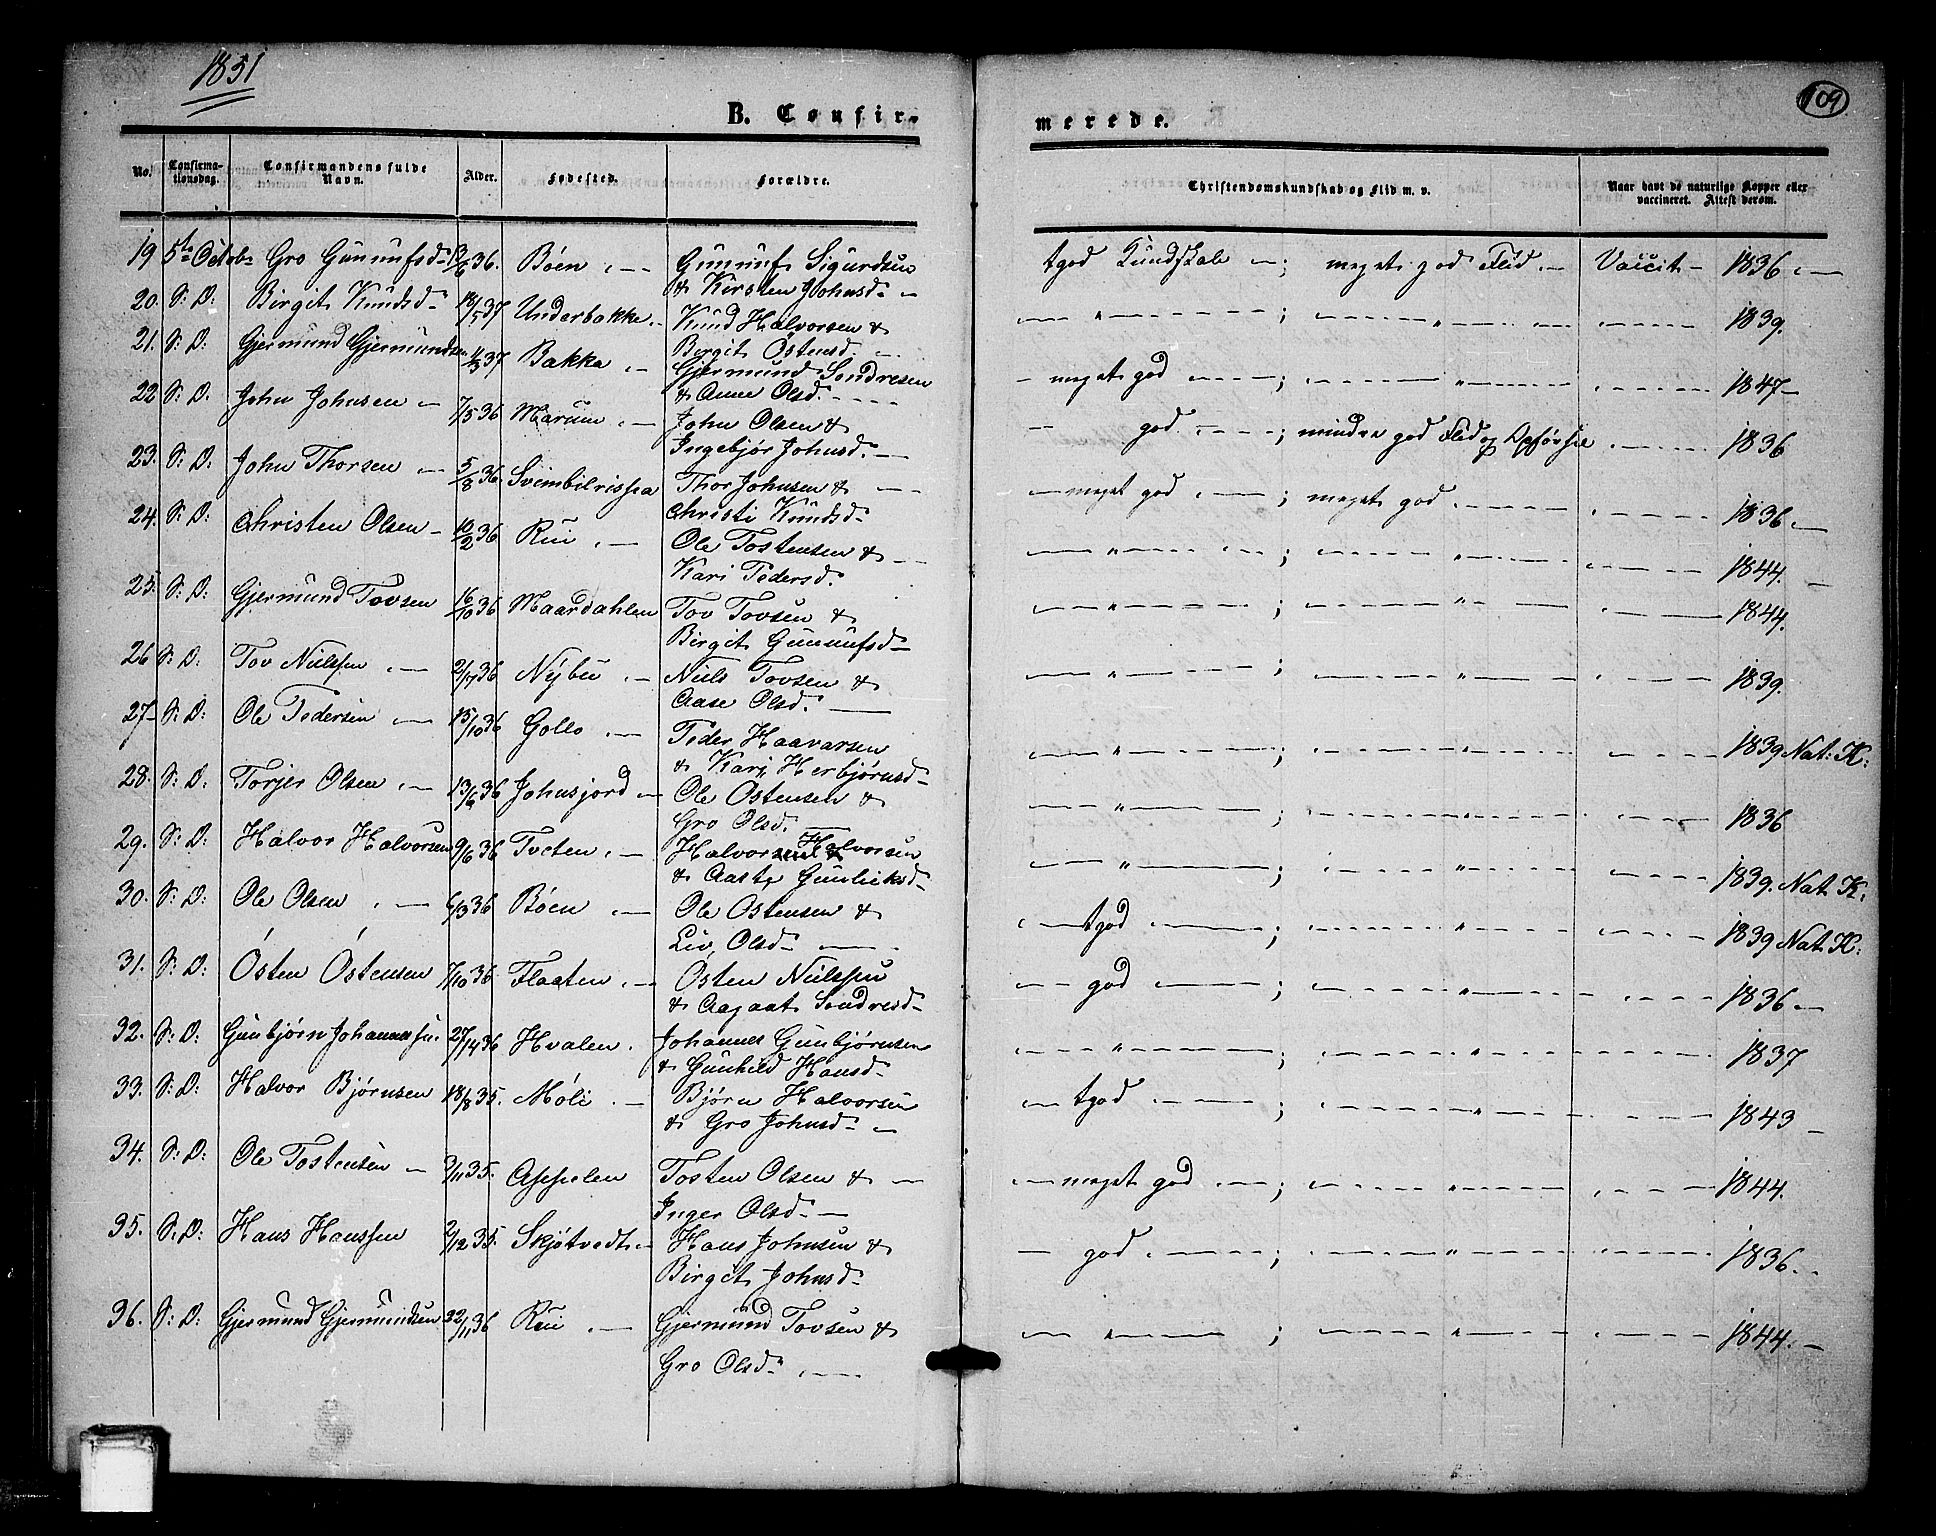 1851
109
B. Confir-
merede.
No.
Confirma-
tionsdag.
Confirmandens fulde
Navn.
Alder.
Fødested.
Forældre.
Christendomskundskab og Flid m. v.
Naar havt de naturlige Kopper eller
vaccineret. Attest derom.
19 5te Octob: Gro Gunnufsd: 13/6 36. Bøen Gunnuf Sigurdsen tgod Kundskab ; meget god Flid Vaccit 1836
& Kirsten Johnsd:
20. S: D: Birgit Knudsd: 18/5 37 Underbakke Knud Halvorsen & " ; " 1839.
Birgit Østensd.
21. S: D: Gjermund Gjermundsen 11/3 37 Bakka Gjermund Sondresen meget god ; " 1847
& Anne Olsd.
22 S: D: John Johnsen 7/5 36 Marum John Olsen & god ; mindre god Flid og Opførsel 1836
Ingebjør Johnsd.
23. S: D: John Thorsen 5/8 36 Svimbilrissa Thor Johnsen & meget god ; meget god 1836
Christi Knudsd:
24. S: D: Christen Olsen 10/2 36 Rui Ole Tostensen & " ; " 1844.
Kari Pedersd.
25. S: D: Gjermund Tovsen 16/10 36 Maardahlen Tov Tovsen & " ; " 1844.
Birgit Gunnufsd
26 S: D: Tov Nielssen 36 Nybu Niels Tovsen & " ; " 1839.
Aase Olsd.
27 S: D: Ole Pedersen 15/10 36 Gollo Peder Haavarsen " ; " 1839 Nat: K:
& Kari Herbjørnsd
28. S: D: Torjer Olsen 13/9 36 Johnsjord Ole Ostensen & " ; " 1836
Gro Olsd.
29. S: D: Halvor Halvorsen 9/6 36 Tveten Halvor Halvorsen " ; " 1839. Nat K:
& Aaste Gunleiksd
30. S: D: Ole Olsen 6/3 36 Bøen Ole Ostensen & tgod ; " 1839 Nat K:
Liv Olsd
31. S: D: Østen Østensen 7/10 36 Flaaten Østen Nielssen god ; " 1836
& Aagaat Sondresd
32. S: D: Gunbjørn Johannessen 27/14 36 Hvalen Johannes Gunbjørnsen " ; " 1837
& Gunhild Hansd
33. S: D: Halvor Bjørnsen 18/8 35. Møli Bjørn Halvorsen tgod ; " 1843
& Gro Johnsd
34. S: D: Ole Tostensen 3/11 35. Appelen Tosten Olsen & meget god ; " 1844.
Inger Olsd
35. S: D: Hans Hanssen 2/12 35. Skjøtvedt Hans Johnsen & god ; " 1836.
Birgit Johnsd
36. S: D: Gjermund Gjermundsen 22/11 36 Rui Gjermund Tovsen & " ; " 1844.
Gro Olsd